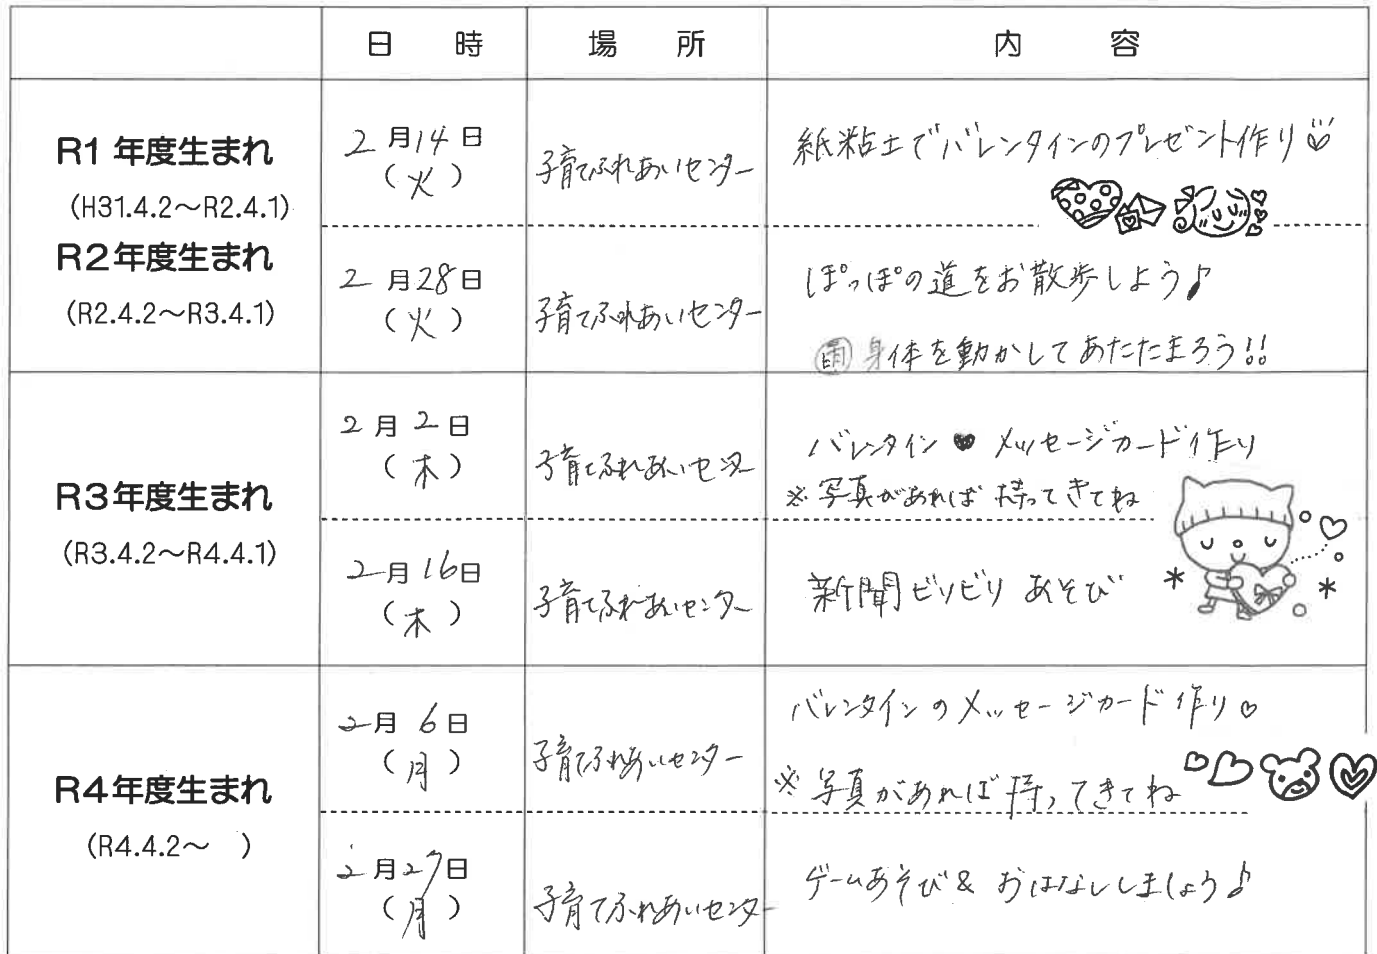 日 時 場 所 内 容
R1 年度生まれ
(H31.4.2～R2.4.1)
R2年度生まれ
(R2.4.2～R3.4.1)
2月14日
(火)
子育てふれあいセンター
紙粘土でバレンタインのプレゼント作り♡
2月28日
(火)
子育てふれあいセンター
ぽっぽの道をお散歩しよう♪
雨 身体を動かしてあたたまろう!!
R3年度生まれ
(R3.4.2～R4.4.1)
2月2日
(木)
子育てふれあいセンター
バレンタイン♥メッセージカード作り
※写真があれば持ってきてね
2月16日
(木)
子育てふれあいセンター
新聞ビリビリあそび
R4年度生まれ
(R4.4.2～ )
2月6日
(月)
子育てふれあいセンター
バレンタインのメッセージカード作り♡
※写真があれば持ってきてね
2月27日
(月)
子育てふれあいセンター
ゲームあそび&おはなししましょう♪